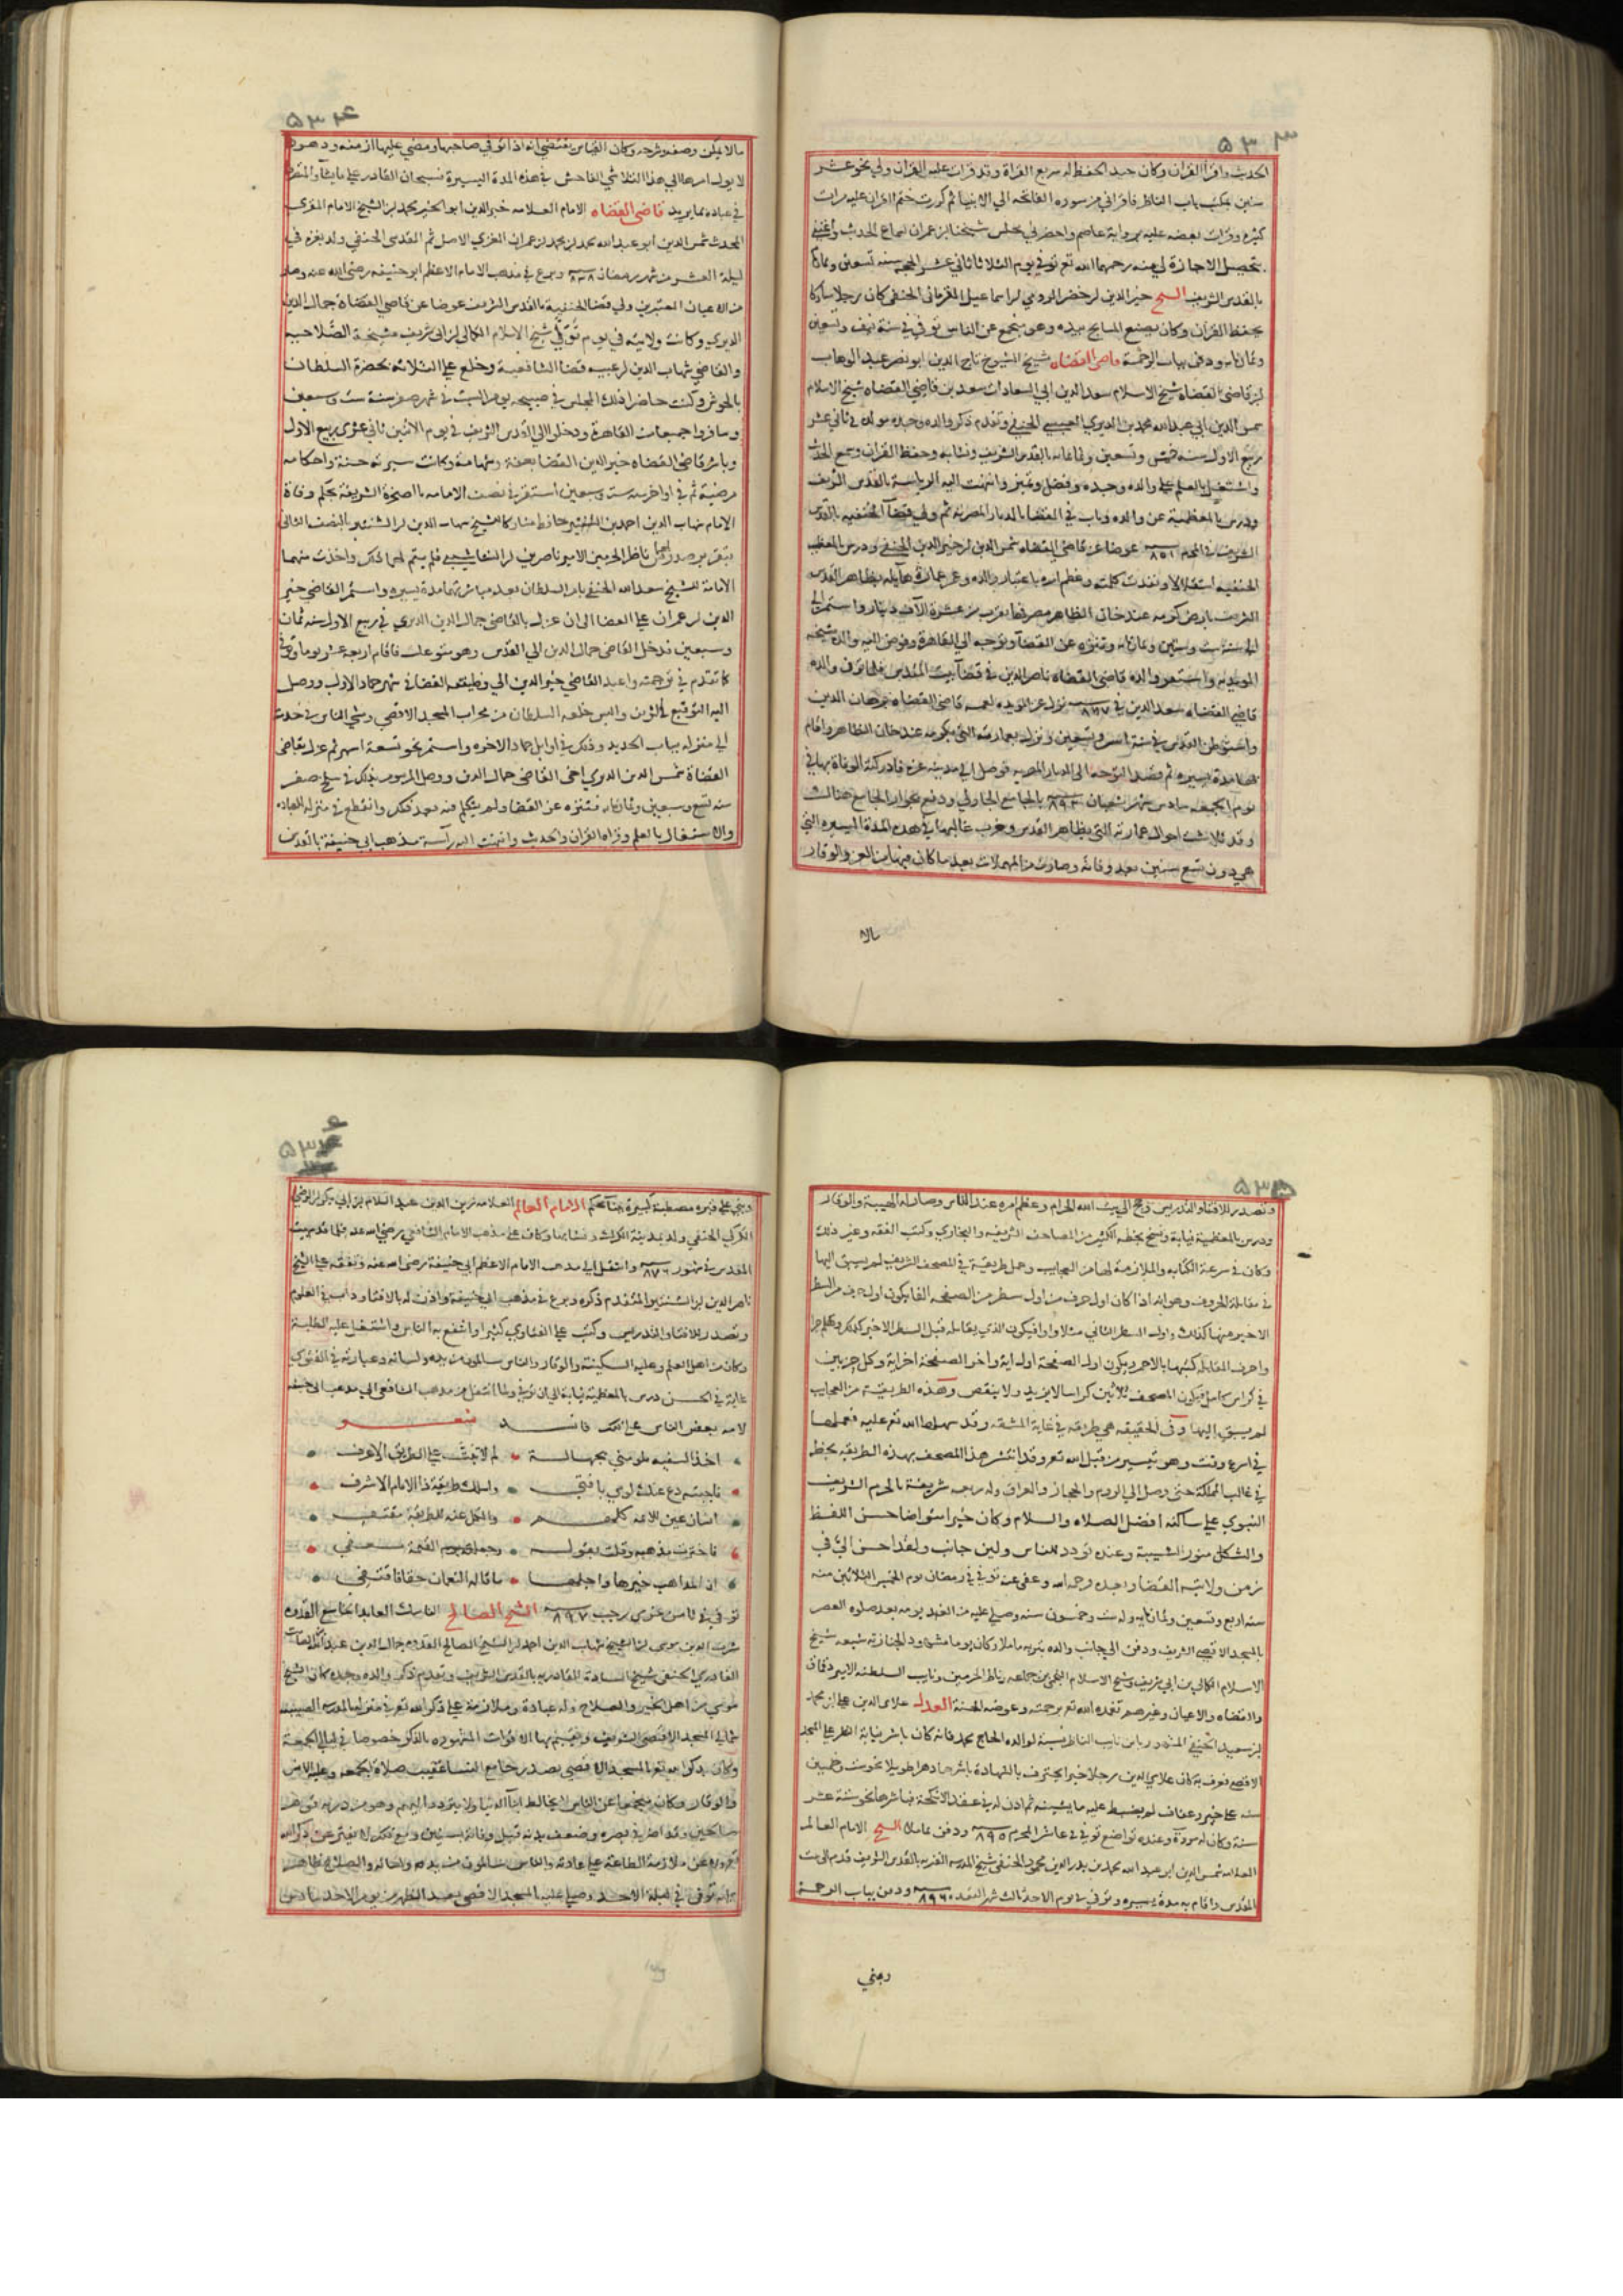 ٥٣٣
الحديث واقرأ القرآن وكان جيد الحفظ له سريع القراة وقد قرات عليه القرآن ولي نحو عشر
سنين بمكتب باب الناظر فاقراني من سورة الفاتحة الي الانبيا ثم كررت ختم القران عليه مرات
كثيره وقرات بعضه عليه برواية عاصم واحضرني مجلس شيخنا ابن عمران لسماع الحديث واعتني
بتحصيل الاجازة لي منه رحمهما الله تع توفي يوم الثلاثا ثاني عشر الحجه سنه تسعين وثمان
بالقدس الشريف الشيخ خير الدين خضر الرومي بن اسماعيل القرماني الحنفي كان رجلا مباركا
يحفظ القران وكان يصنع المسابح بيده وهو منجمع عن الناس توفي في سنة نيف وتسعين
وثمان مايه ودفن بباب الرحمة قاضي القضاه شيخ الشيوخ تاج الدين ابو نصر عبد الوهاب
بن قاضي القضاة شيخ الاسلام سعد الدين ابي السعادات سعد بن قاضي القضاه شيخ الاسلام
شمس الدين ابي عبد الله محمد بن الديري العبسي الحنفي وتقدم ذكر والده وجده مولده في ثاني عشر
ربيع الاول سنه خمس وتسعين وثمانمايه بالقدس الشريف ونشا به وحفظ القران وسمع الحديث
واشتغل بالعلم علي والده وجده وفضل وتميز وانتهت اليه الرياسة بالقدس الشريف
ودرس بالمعظمية عن والده وناب في القضا بالديار المصريه ثم ولي قضآ الحنفيه بالقدس
الشريف في المحرم ٨٥١ عوضا عن قاضي القضاه شمس الدين بن خير الدين الحنفي ودرس بالمعظميه
الحنفيه استقلالا ونفذت كلمته وعظم امره باعتبار والده وعمر عمارة هآيله بظاهر القدس
الشريف بارض كومه عند خان الظاهر مصرفها يقرب من عشرة الآف دينار واستمر الي
سنة ست وستين وثمان مايه وتنزه عن القضآ وتوجه الي القاهرة وفوض اليه والده مشيخه
المويديه واستقر والده قاضي القضاه ناصر الدين في قضآ بيت المقدس فلما توفي والده
قاضي القضاه سعد الدين في ٨٦٧ نزل عن المويديه لعمه قاضي القضاة برهان الدين
واستوطن القدس في سنة تسعين ونزل بعمارته التي بكومه عند خان الظاهر واقام
بها مدة يسيره ثم قصد التوجه الي الديار المصريه فوصل الي مدينه غزه فادركته الوفاة بها في
يوم الجمعه سادس شهر شعبان ٨٩٢ بالجامع الجاولي ودفن بجوار الجامع هنالك
وقد تلاشت احوال عمارته التي بظاهر القدس وخرب غالبها في هذه المدة اليسيره التي
هي دون تسع سنين بعد وفاته وصارت من المهملات بعد ما كان فيها من العز والوقار
مالا
٥٣٤
مالا يمكن وصفه وشرحه وكان القياس يقتضي انه اذا توفي صاحبها ومضي عليها ازمنه ودهور
لا يول امرها الي هذا التلاشي الفاحش في هذه المدة اليسيرة فسبحان القادر علي ما يشآ والمتصرف
في عباده بما يريد قاضي القضاه الامام العلامه خير الدين ابو الخير محمد بن الشيخ الامام المقري
المحدث شمس الدين ابو عبد الله محمد بن محمد بن عمران الغزي الاصل ثم المقدسي الحنفي ولد بغزه في
ليلة العشر من شهر رمضان ٨٣٨ وبرع في مذهب الامام الاعظم ابو حنيفه رضي الله عنه وصار
من الاعيان المعتبرين ولي قضا الحنفية بالقدس الشريف عوضا عن قاضي القضاة جمال الدين
الديري وكانت ولايته في يوم تولّي شيخ الاسلام الكمالي بن ابي شريف مشيخة الصلاحيه
والقاضي شهاب الدين بن عبيه قضا الشافعية وخلع علي الثلاثه بحضرة السلطان
بالحوش وكنت حاضرا ذلك المجلس في صبيحه يوم السبت في شهر صفر سنة ست وسبعين
وسافروا جميعا من القاهرة ودخلوا الي القدس الشريف في يوم الاثنين ثاني عشري ربيع الاول
وباشر قاضي القضاه خير الدين القضا بعفة وشهامة وكانت سيرته حسنة واحكامه
مرضية ثم في اواخر سنه ست وسبعين استقر في نصف الامامه بالصخرة الشريفة بحكم وفاة
الامام شهاب الدين احمد بن الشنتير حافظ مشاركا للشيخ شهاب الدين بن الشنتير بالنصف الثاني
بتقرير صدر لهما من ناظر الحرمين الامير ناصر بن النشاشيبي فلم يتم لهما ذلك واخذت منهما
الامامة للشيخ سعد الله الحنفي بامر السلطان بعد مباشرتهما مدة يسيره واستمر القاضي خير
الدين بن عمران علي القضا الي ان عزل بالقاضي جمال الدين الديري في ربيع الاول سنه ثمان
وسبعين فدخل القاضي جمال الدين الي القدس وهو متوعك فاقام اربعه عشر يوما وتوفي
كما تقدم في ترجمته واعيد القاضي خير الدين الي وظيفته القضا في شهر جماد الاول ووصل
اليه التوقيع الشريف والبس خلعه السلطان من محراب المسجد الاقصي ومشي الناس في خدمته
الي منزله بباب الحديد وذلك في اوايل جماد الاخره واستمر نحو تسعة اشهر ثم عزل بقاضي
القضاة شمس الدين الديري اخي القاضي جمال الدين ووصل المرسوم بذلك في سلخ صفر
سنه تسع وسبعين وثمان مايه فتنزه عن القضا ولم يتكلم فيه بعد ذلك وانقطع في منزله للعباده
والاشتغال بالعلم وقراه القران والحديث وانتهت اليه رآسة مذهب ابي حنيفة بالقدس
٥٣٥
وتصدر للافتا والتدريس وحج الي بيت الله الحرام وعظم امره عند الناس وصار له الهيبة والوقار
ودرس بالمعظمية نيابة ونسخ بخطه الكثير من المصاحف الشريفه والبخاري وكتب الفقه وغير ذلك
وكان في سرعة الكتابه والملازمة لها من العجايب وعمل طريقة في المصحف الشريف لم يسبق اليها
في مقابلة الحروف وهو انه اذا كان اول حرف من اول سطر من الصفحه الفا يكون اول حرف من السطر
الاخير منها كذلك واول السطر الثاني مثلا واوا فيكون الذي يقابله قبل السطر الاخير كذلك وهلم جرا
واحرف المقابله كتبها بالاحمر ويكون اول الصفحة اول اية واخر الصفحة اخر اية وكل جزبين
في كراس كامل فيكون المصحف ثلاثين كراسا لا يزيد ولا ينقص وهذه الطريقة من العجايب
لم يسبق اليها وفي الحقيقه هي طريقه في غاية المشقه وقد سهلها الله تع عليه فعملها
في اسرع وقت وهو تيسير من قبل الله تع وقد انتشر هذا المصحف بهذه الطريقه بخطه
في غالب المملكة حتي وصل الي الروم والحجاز والعراق وله ربعه شريفة بالحرم الشريف
النبوي علي ساكنه افضل الصلاه والسلام وكان خيرا متواضعا حسن اللفظ
والشكل منور الشيبة وعنده تودد للناس ولين جانب ولقد احسن الي في
زمن ولايته القضا وبعده رحمه الله وعفي عنه توفي في رمضان يوم الخميس الثلاثين منه
سنه اربع وتسعين وثمانمايه وله ست وخمسون سنه وصلي عليه من الغد يومه بعد صلوه العصر
بالمسجد الاقصي الشريف ودفن الي جانب والده بتربه ماملا وكان يوما مشهودا لجنازته شيعه شيخ
الاسلام الكمالي بن ابي شريف وشيخ الاسلام النجمي بن جماعه وناظر الحرمين ونايب السلطنه الامير دقماق
والقضاه والاعيان وغيرهم تغمده الله تع برحمته وعوضه الجنة العدل علاي الدين علي بن محمد
بن سعيد الحنفي المشهور بابن نايب الناظر نسبة لوالده الحاج محمد فانه كان باشر نيابة النظر علي المسجد
الاقصي فعرف به كان علاي الدين رجلا خيرا يحترف بالشهادة باشرها دهرا طويلا نحو ست وخمسين
سنه علي خير وعفاف لم يضبط عليه ما يشينه ثم اذن له في عقد الانكحة فباشرها نحو ستة عشر
سنة وكان له مروة وعنده تواضع توفي في عاشر المحرم ٨٩٥ ودفن بماملا الشيخ الامام العالم
العلامه شمس الدين ابو عبد الله محمد بن بدر الدين محمود الحنفي شيخ المدرسه القدريه بالقدس الشريف قدم الي بيت
المقدس واقام به مدة يسيره وتوفي في يوم الاحد ثالث شهر القعده ٨٩٦ ودفن بباب الرحمة
وبني
٥٣٦
وبني علي قبره مصطبة كبيرة بناء محكم الامام العالم العلامه زين الدين عبد السلام بن ابي بكر بن الرضي
الكركي الحنفي ولد بمدينة الكرك ونشا بها وكان علي مذهب الامام الشافعي رضي الله عنه فلما قدم بيت
المقدس في شهور ٨٧٦ وانتقل الي مذهب الامام الاعظم ابي حنيفة رضي الله عنه وتفقه علي الشيخ
ناصر الدين بن الشنتير المتقدم ذكره وبرع في مذهب ابي حنيفه واذن له بالافتا ودآب في العلوم
وتصدر للافتا والتدريس وكتب علي الفتاوي كثيرا وانتفع به الناس واشتغل عليه الطلبة
وكان من اهل العلم وعليه السكينة والوقار والناس سالمون من يده ولسانه وعبارته في الفتوي
غاية في الحسن درس بالمعظمية نيابة الي ان توفي ولما انتقل من مذهب الشافعي الي مذهب ابي حنيفه
لامه بعض الناس علي ذلك فانشد شعر
اخذ السفيه يلومني بجهالة لم لا تبعت علي الطريق الاعرف
فاجبته دع عنك لومي يا فتي واسلك طريقة ذا الامام الاشرف
انسان عين الايمه كلهم والكل عنه للطريقه مقتفي
فاخترت مذهبه وقلت بقوله وجعلته يوم القيمة مسعفي
ان المذاهب خيرها واجلها ما قاله النعمان حقا فاقتفي
توفي في ثامن عشري رجب ٨٩٧ الشيخ الصالح الناسك العابد الخاشع القدوه
شرف الدين موسي بن الشيخ شهاب الدين احمد بن الشيخ الصالح القدوه جمال الدين عبد الله الصامت
القادري الحنفي شيخ السادة القادريه بالقدس الشريف وتقدم ذكر والده وجده كان الشيخ
موسي من اهل الخير والصلاح وله عبادة وملازمة علي ذكر الله تع في منزله بالمدرسه الصبيبيه
شمالي المسجد الاقصي الشريف ويقيم بها الاوقات المشهوده بالذكر خصوصا في ليالي الجمعة
وكان يذكر الله تع بالمسجد الاقصي بصدر جامع النسا عقيب صلاة الجمعه وعليه الانس
والوقار وكان منجمعا عن الناس لا يخالط ابنآ الدنيا ولا يتردد اليهم وهو من ذريه قوم
صالحين وقد اضر في بصره وضعف بدنه قبل وفاته بسنين ومع ذلك لا يفتر عن ذكر الله
تع ولا عن ملازمة الطاعة علي عادته والناس سالمون من يده ولسانه والصلاح ظاهر
عليه توفي في ليلة الاحد وصلي عليه بالمسجد الاقصي بعد الظهر من يوم الاحد